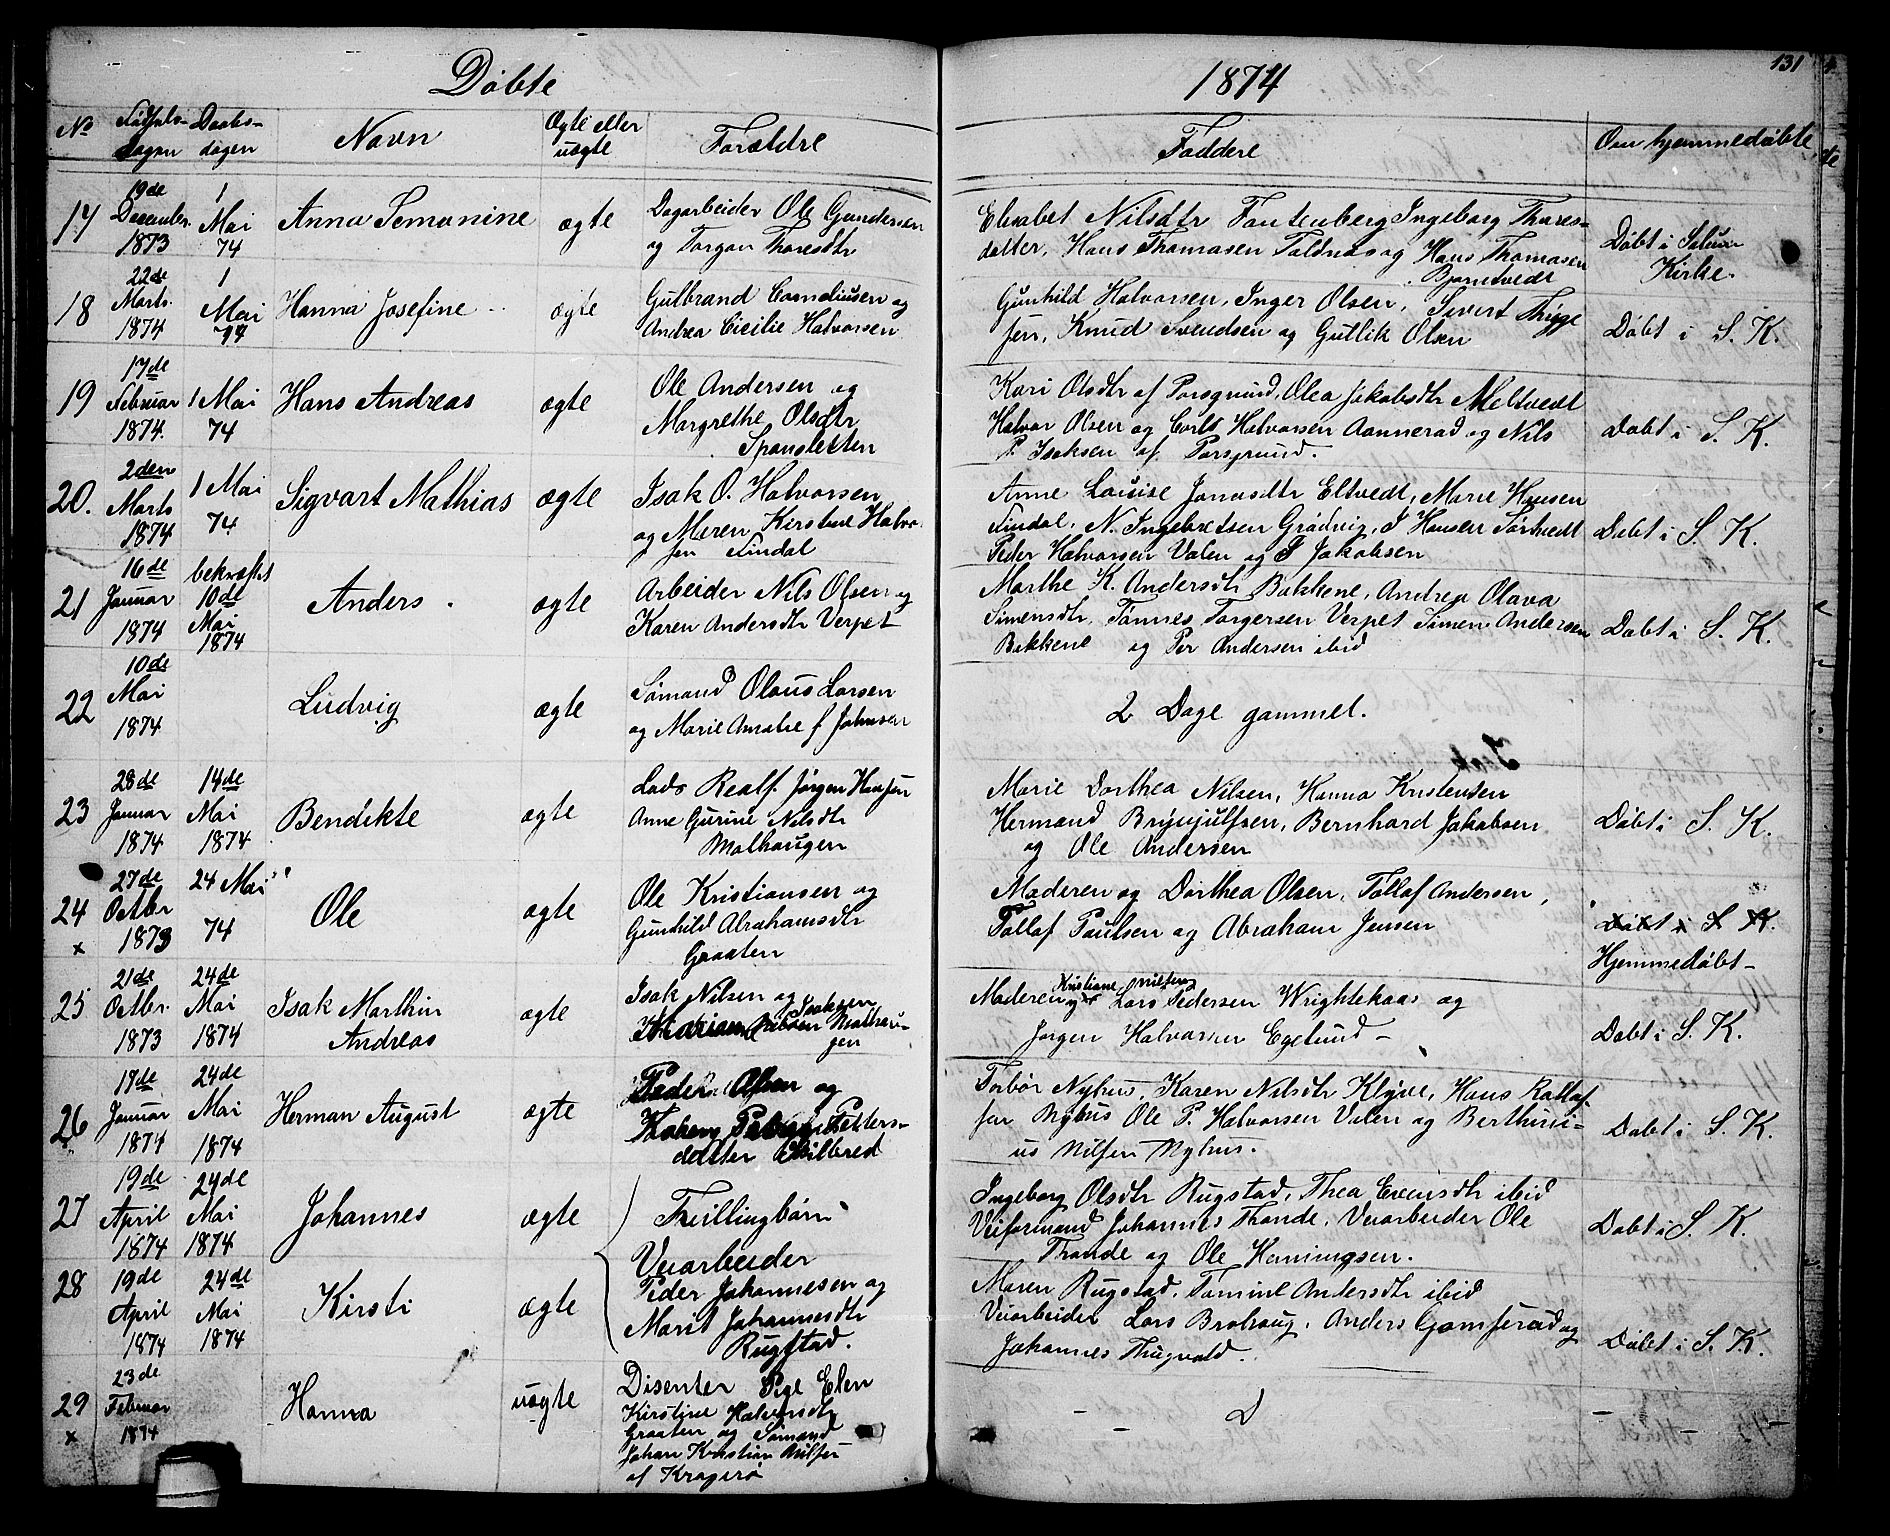 Döbte
1874
131
No
Födsels-
dagen
Daabs-
dagen
Navn
Ægte eller
uægte
Forældre
Faddere
Om hjemmedöbte
17
19de
December
1873
1
Mai
74
Anna Semonine
ægte
Dagarbeider Ole Gundersen
og Torgon Thoresdtr
Elisabet Nilsdtr Fantenberg Ingeborg Thores-
datter, Hans Thomasen Foldnas og Hans Thomasen
Bjorntvedt
Döbt i Solum
Kirke.
18
22de
Marts
1874
1
Mai
74
Hanna Josefine
ægte
Gulbrand Corneliusen og
Andrea Cicilie Halvorsen
Gunhild Halvorsen, Inger Olsen, Sivert Thygge
sen, Knud Svendsen og Gutlik Olsen
Döbt i S. K.
19
17de
Februar
1874.
1 Mai
74
Hans Andreas
ægte
Ole Andersen og
Margrethe Olsdtr
Spansletten
Kari Olsdtr af Porsgrund, Olea Jakobsdtr Meltvedt
Halvor Olsen og Carls Halvorsen Aannerød og Nils
P. Isaksen af Porsgrund.
Döbt i S. K.
20.
2den
Marts
1874
1 Mai
74
Sigvart Mathias
ægte
Isak O. Halvorsen
og Maren Kirstine Halvor
sen Findal
Anne Louise Jonasdtr Eltvedt, Marie Hansen
Findal, N. Ingebretsen Grådvig, J Hansen Sørtvedt
Peder Halvorsen Valen og P Jakobsen
Döbt i S. K.
21
16de
Januar
1874
bekræftet
10de
Mai
1874
Anders
ægte
Arbeider Nils Olsen og
Karen Andersdtr Verpet
Marthe K. Andersdtr Bakkene, Andrea Olava
Simensdtr, Tønnes Torgersen Verpet Simen Andersen
Bakkene og Per Andersen ibid
Döbt i S. K.
22
10de
Mai
1874
Ludvig
ægte
Sømand Olaus Larsen
og Marie Amalie f Johnsen
2 Dage gammel.
23
28de
Januar
1874
14de
Mai
1874
Bendikte
ægte
Lods Realf. Jørgen Hansen
Anne Gurine Nilsdtr
Molhaugen
Marie Dorthea Nilsen, Hanna Kristensen
Hermand Brynjulfsen, Bernhard Jakobsen
og Ole Andersen
Döbt i S. K.
24
x
27de
Octbr
1873
24 Mai
74
Ole
ægte
Ole Kristiansen og
Gunhild Abrahamsdtr
Graaten
Moderen og Dorthea Olsen, Tollof Andersen,
Tollof Paulsen og Abraham Jensen
Döbt i S K.
Hjemmedöbt-
25
21de
Octbr.
1873
24de
Mai
1874
Isak Marthin
Andreas
ægte
Isak Nilsen og
Isaksen
Mathau-
gen
Kristiane Nilsen
Moderen og Lars Pedersen Wrightekaas og
Jørgen Halvorsen Egelund -
Döbt i S. K.
26
17de
Januar
1874
24de
Mai
1874
Herman August
ægte
Peder Olsen og
Petters-
datter Skilbred
Torbør Nyhus, Karen Nilsdtr Klyve, Hans Rollef-
sen Nyhus Ole P. Halvorsen Valen og Berthini-
us Nilsen Nyhus.
Döbt i S. K.
27
19de
April
1874
24de
Mai
1874
Johannes
ægte
Tvillingbørn
Veiarbeider
Peder Johannesen og
Marit Johannesdtr
Rugstad.
Ingeborg Olsdtr Rugstad, Thea Evensdtr ibid
Veiformand Johannes Thande, Veiarbeider Ole
Thande og Ole Hemingsen.
Döbt i S. K.
28
19de
April
1874
24de
Mai
1874
Kirsti
ægte
Maren Rugstad, Tomine Andersdtr ibid
Veiarbeider Lars Brohaug, Anders Gomserud og
Johannes Thugvold.
Döbt i S. K.
29
x
23de
Februar
1874
Hanna
uægte
Disenter Pige Elen
Kirstine Halvorsdtr
Graaten og Sømand
Johan Kristian Nilsen
af Kragerø
- D - -